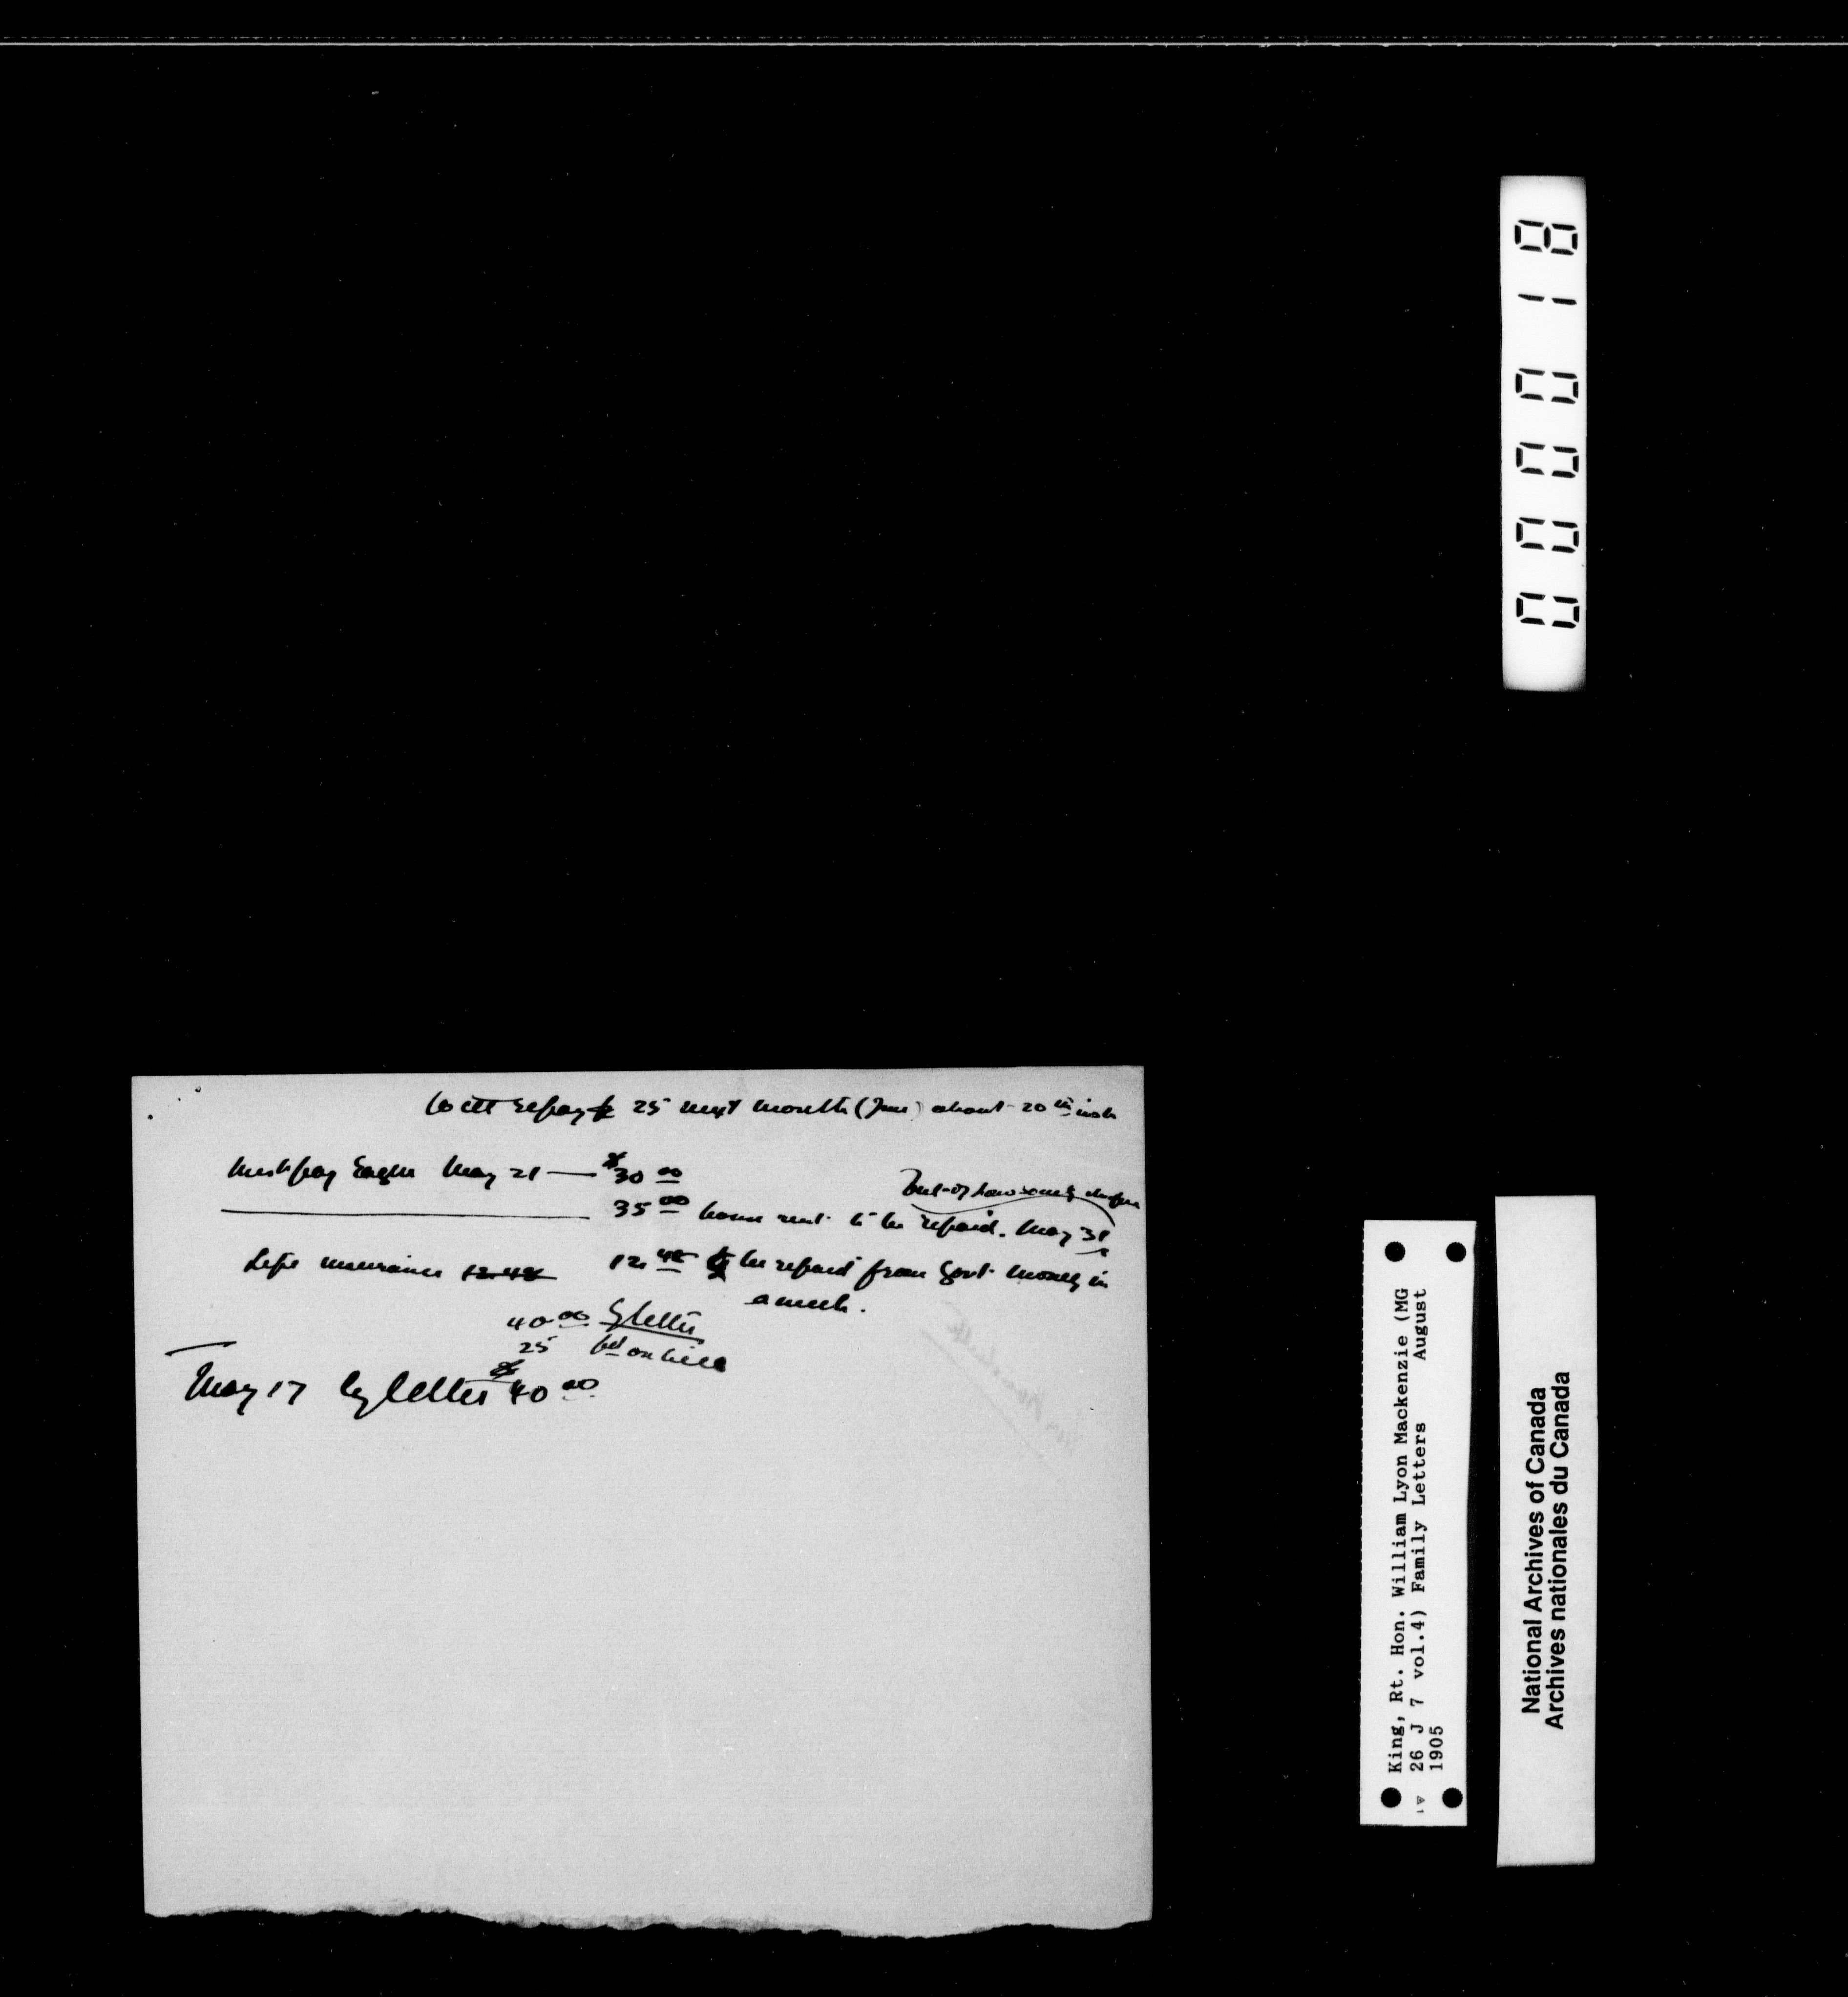 Will repay $ 25 next month (June) about 20th inst
Must pay Eagen May 21 — $30 00
Out of law society cheque
35 00 house rent to be repaid. May 31
Life insurance 12.48 12.48 to be repaid from Govt money in
a week.
40 00 by letter
25 pd on bill
May 17 by letter $40 00
000018
King, Rt. Hon. William Lyon Mackenzie (MG
26 J 7 vol.4) Family Letters August
1905
National Archives of Canada
Archives nationales du Canada